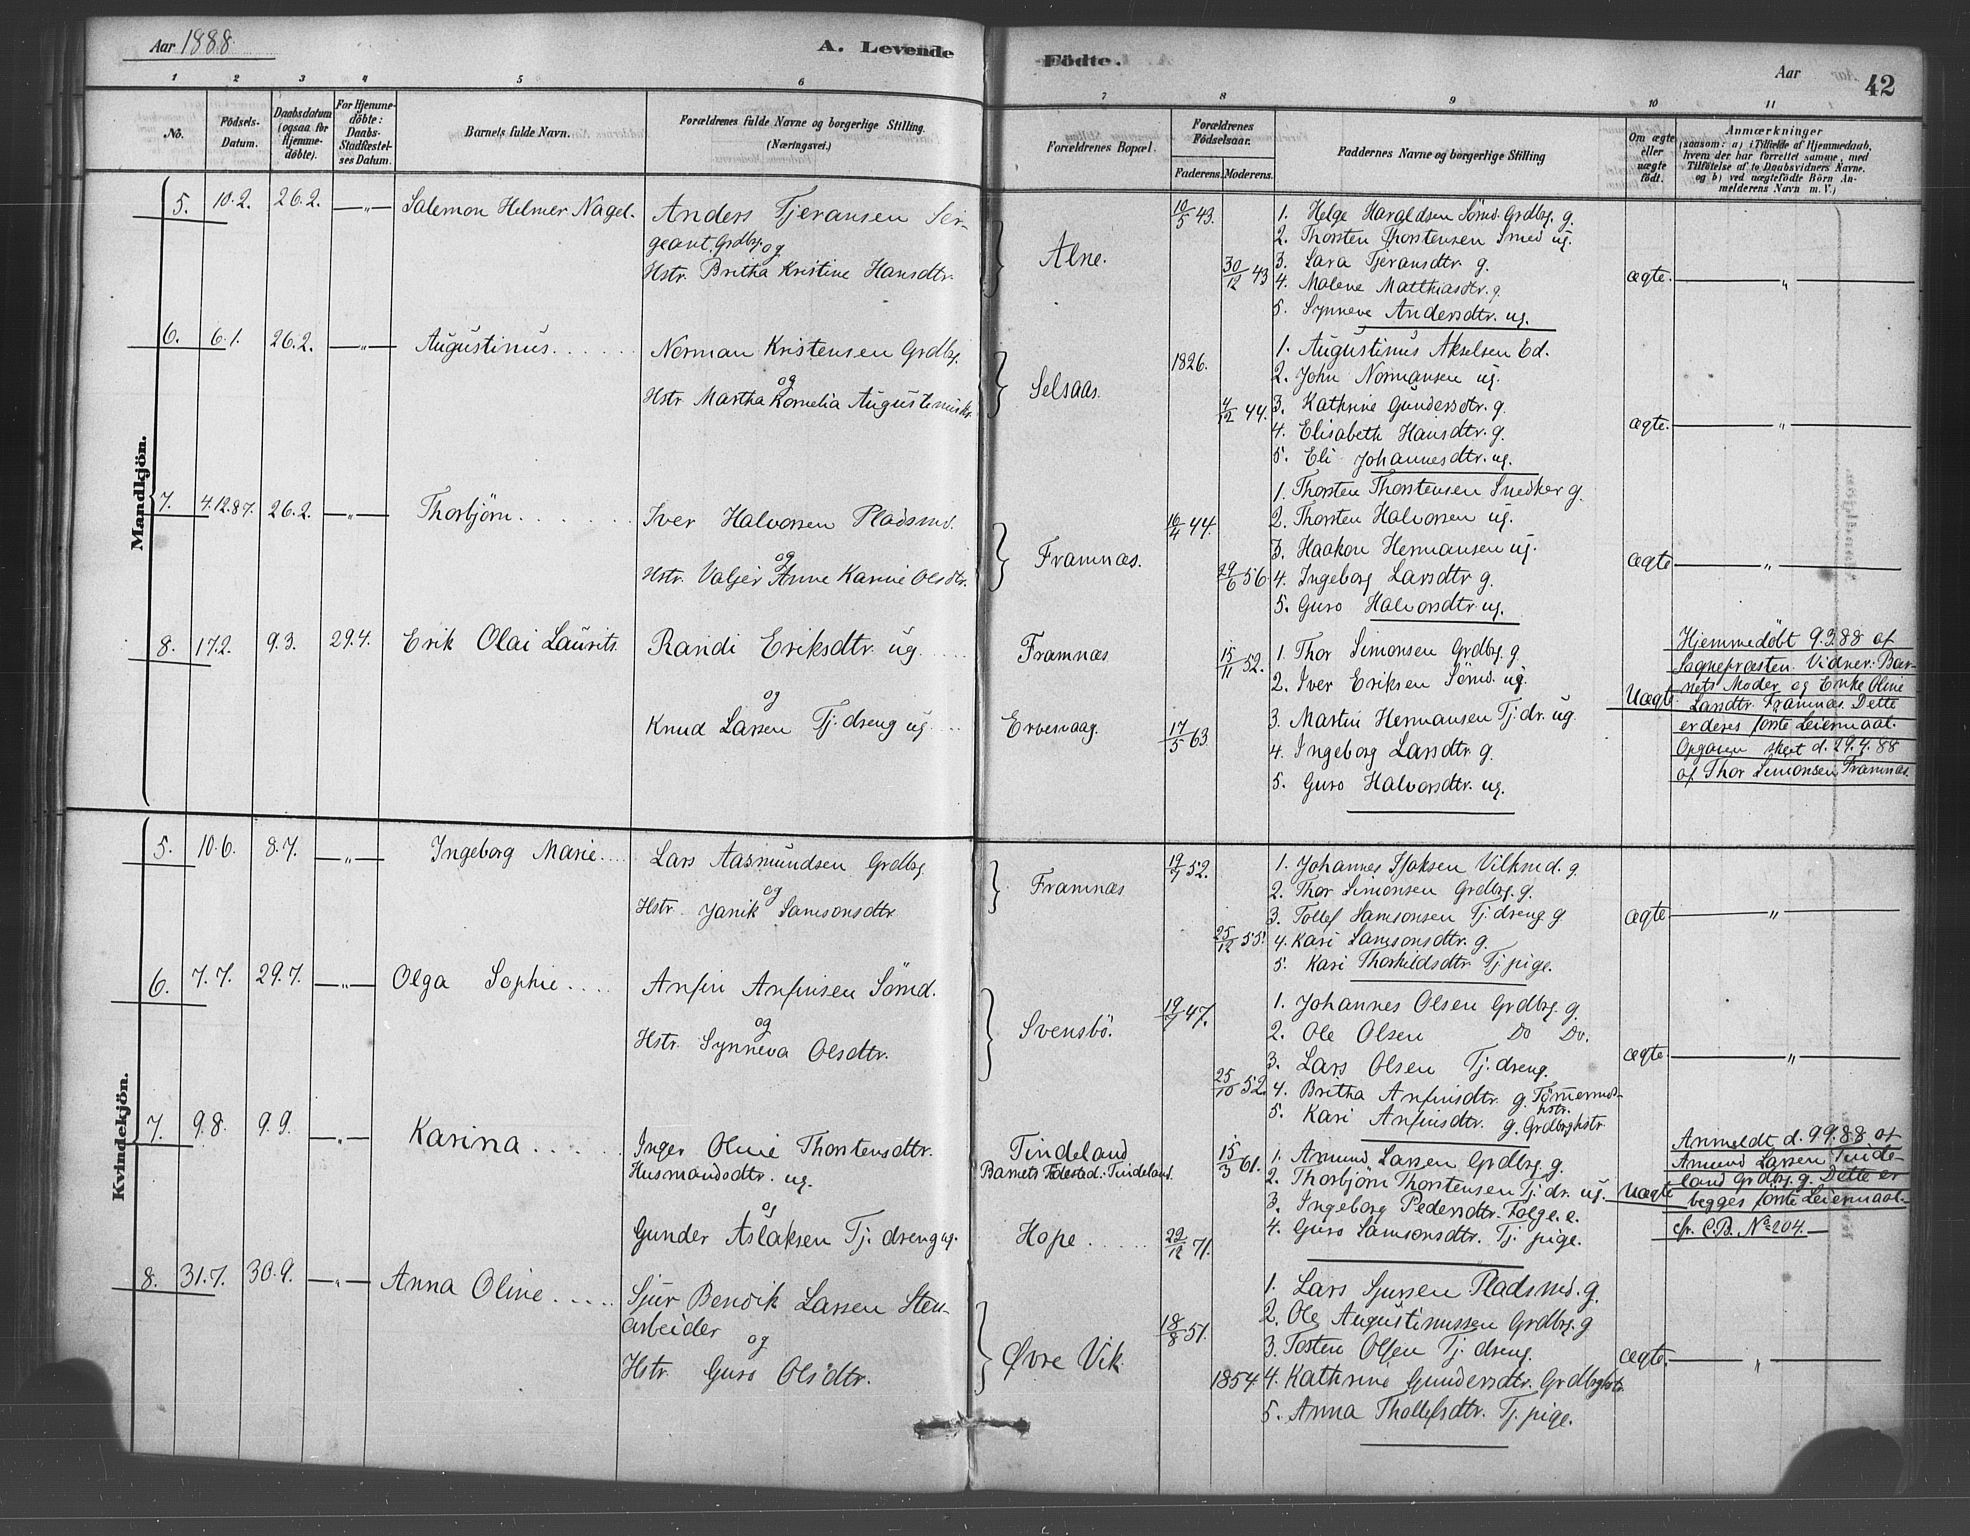 Aar 1888
A. Levende
Födte.
Aar
42
1 2 3 4 5 6 7 8 9 10 11
No.
Födsels-Datum.
Daabsdatum (ogsaa for Hjemmedöbte).
For Hjemmedöbte: Daabs-Stadfæstelses Datum.
Barnets fulde Navn.
Forældrenes fulde Navne og borgerlige Stilling.
(Næringsvei.)
Forældrenes Bopæl.
Forældrenes Födselsaar.
Faderens. Moderens.
Faddernes Navne og borgerlige Stilling
Om ægte eller uægte födt.
Anmærkninger
(saasom: a) i Tilfælde af Hjemmedaab,
hvem der har forrettet samme, med
Tilföielse af to Daabsvidners Navne.
og b) ved uægtefödte Börn An-
melderens Navn m. V.)
Mandkjön.
5. 10.2. 26.2. —"— Salemon Helmer Nagel.
Anders Tjeransen Ser-
geant, Grdbrg. og
Hstr. Britha Kristine Hansdtr.
Alne.
10/5 43.
30/12 43
1. Helge Haraldsen Sømd. Grdbrg. g.
2. Thorsten Thorstensen Smed ug.
3. Lara Tjeransdtr. g.
4. Malene Matthiasdtr. g.
5. Synneve Andersdtr. ug.
ægte. —"—
6. 6.1. 26.2. —"— Augustinus.
Norman Kristensen Grdbrg.
og
Hstr. Martha Kornelia Augustinusdtr.
Selsaas.
1826.
4/12 44.
1. Augustinus Akselsen Ed.
2. John Normansen ug.
3. Kathrine Gundersdtr. g.
4. Elisabeth Hansdtr. g.
5. Eli Johannesdtr. ug.
ægte. —"—
7. 4.12.87. 26.2. —"— Thorbjörn
Iver Halvorsen Pladsmd.
og
Hstr. Valjer Anne Karine Olsdtr.
Framnæs.
16/4 44.
29/6 56.
1. Thorsten Thorstensen Snedker g.
2. Thorsten Halvorsen ug.
3. Haakon Hermansen ug.
4. Ingeborg Larsdtr. g.
5. Guro Halvorsdtr. ug.
ægte —"—
8. 17.2. 9.3. 29.4. Erik Olai Laurits.
Randi Eriksdtr. ug.
og
Knud Larsen Tj. dreng ug.
Framnæs
Ervesvaag.
15/11 52.
17/5 63.
1. Thor Simonsen Grdbrg. g
2. Iver Eriksen Sømd. ug.
3. Martin Hermansen Tj. dr. ug.
4. Ingeborg Larsdtr. g.
5. Guro Halvorsdtr. ug.
Uægte
Hjemmedøbt 9.3.88 af
Sognepræsten. Vidner: Bar-
nets Moder og Enke Oline
Larsdtr. Framnæs. Dette
er deres første Leiermaal.
Opgaven skeet d. 29.4.88
af Thor Simonsen Framnæs.
Kvindekjön.
5. 10.6. 8.7. —"— Ingeborg Marie
Lars Aasmundsen Grdbrg.
og
Hstr. Janik Samsonsdtr.
Framnæs
19/7 52.
25/12 55.
1. Johannes Isaksen Vilksmd. g.
2. Thor Simonsen Grdbrg. g.
3. Tollef Samsonsen Tj. dreng g.
4. Kari Samsonsdtr. g.
5. Kari Thorkildsdtr. Tj. pige.
ægte —"—
6. 7.7. 29.7. —"— Olga Sophie
Anfin Anfinsen Sømd.
og
Hstr. Synneva Olsdtr.
Svensbö.
19/7 47.
25/10 52.
1. Johannes Olsen Grdbrg. g.
2. Ole Olsen Do Do.
3. Lars Olsen Tj. dreng.
4. Britha Anfinsdtr. g. Tömermds-
hstr.
5. Kari Anfinsdtr. g. Grdbrghstr.
ægte —"—
7. 9.8. 9.9. —"— Karina
Inger Oline Thorstensdtr.
Husmandsdtr. ug.
og
Gunder Aslaksen Tj. dreng ug.
Tindeland
Barnets Fødested: Tindeland.
Hope
15/3 61.
22/12 71.
1. Amund Larsen Grdbrg. g.
2. Thorbjörn Thorstensen Tj. dr. ug.
3. Ingeborg Pedersdtr. Folge. e.
4. Guro Samsonsdtr. Tj. pige.
Uægte
Anmeldt d. 9.9.88 af
Amund Larsen Tinde-
land Grdbrg. g. Dette er
begges første Leiermaal.
cfr. C.B. No 204.
8. 31.7. 30.9. —"— Anna Oline
Sjur Bendik Larsen Sten-
arbeider og
Hstr. Guro Olsdtr.
Øvre Vik.
18/8 51.
1854
1. Lars Sjursen Pladsmd. g.
2. Ole Augustinussen Grdbrg. g
3. Tosten Olsen Tj. dreng.
4. Kathrine Gundersdtr. Grdbrghstr.
5. Anna Thollefsdtr. Tj. pige.
ægte. —"—